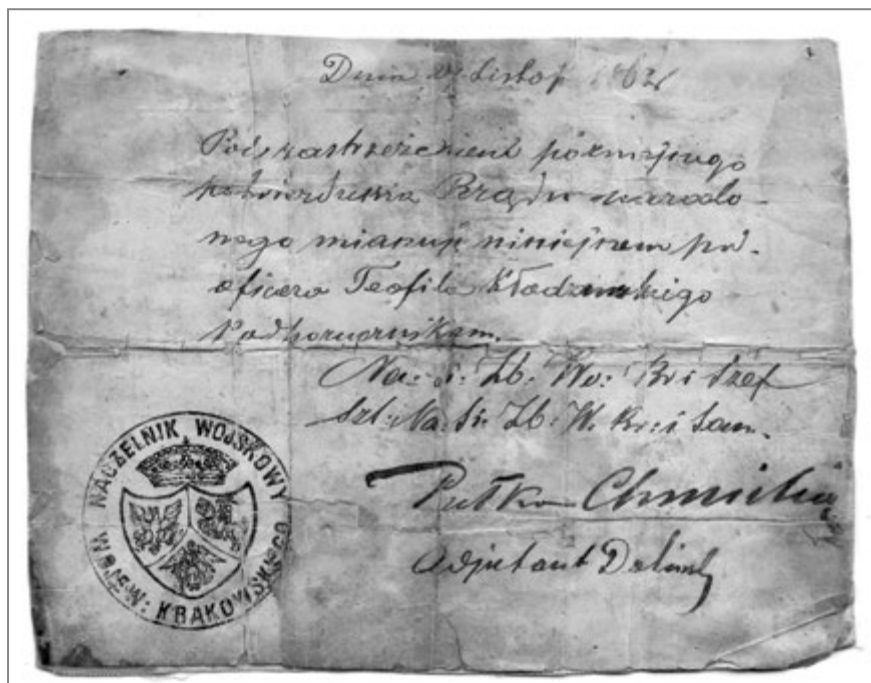 Dnia Listop 186
Pod zastrzeżeniem późniejszego
potwierdzenia Rządu narodo-
wego mianuję niniejszem pod-
oficera Teofila Kłodzinskiego
Podchorązykiem.
Na: Si: Zb: Wo: Kr: i Szef
Szt: Na: Si: Zb: W. Kr: i San.
Pułko
Adjutant
NACZELNIK WOJSKOWY
WOJEW: KRAKOWSKIEGO